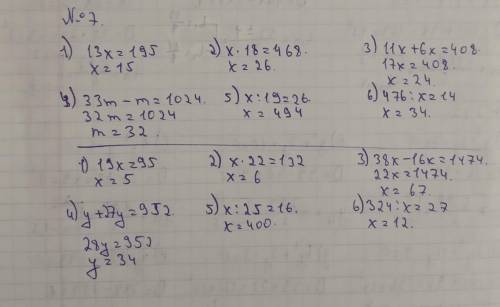 №7.
1) 13x = 195 2) x · 18 = 468. 3) 11x + 6x = 408.
x = 15 x = 26. 17x = 408.
x = 24.
4) 33m – m = 1024. 5) x : 19 = 26. 6) 476 : x = 14
32m = 1024 x = 494 x = 34.
m = 32.
1) 19x = 95 2) x · 22 = 132 3) 38x – 16x = 1474.
x = 5 x = 6 22x = 1474.
x = 67.
4) y + 27y = 952. 5) x : 25 = 16. 6) 324 : x = 27
28y = 952 x = 400. x = 12.
y = 34